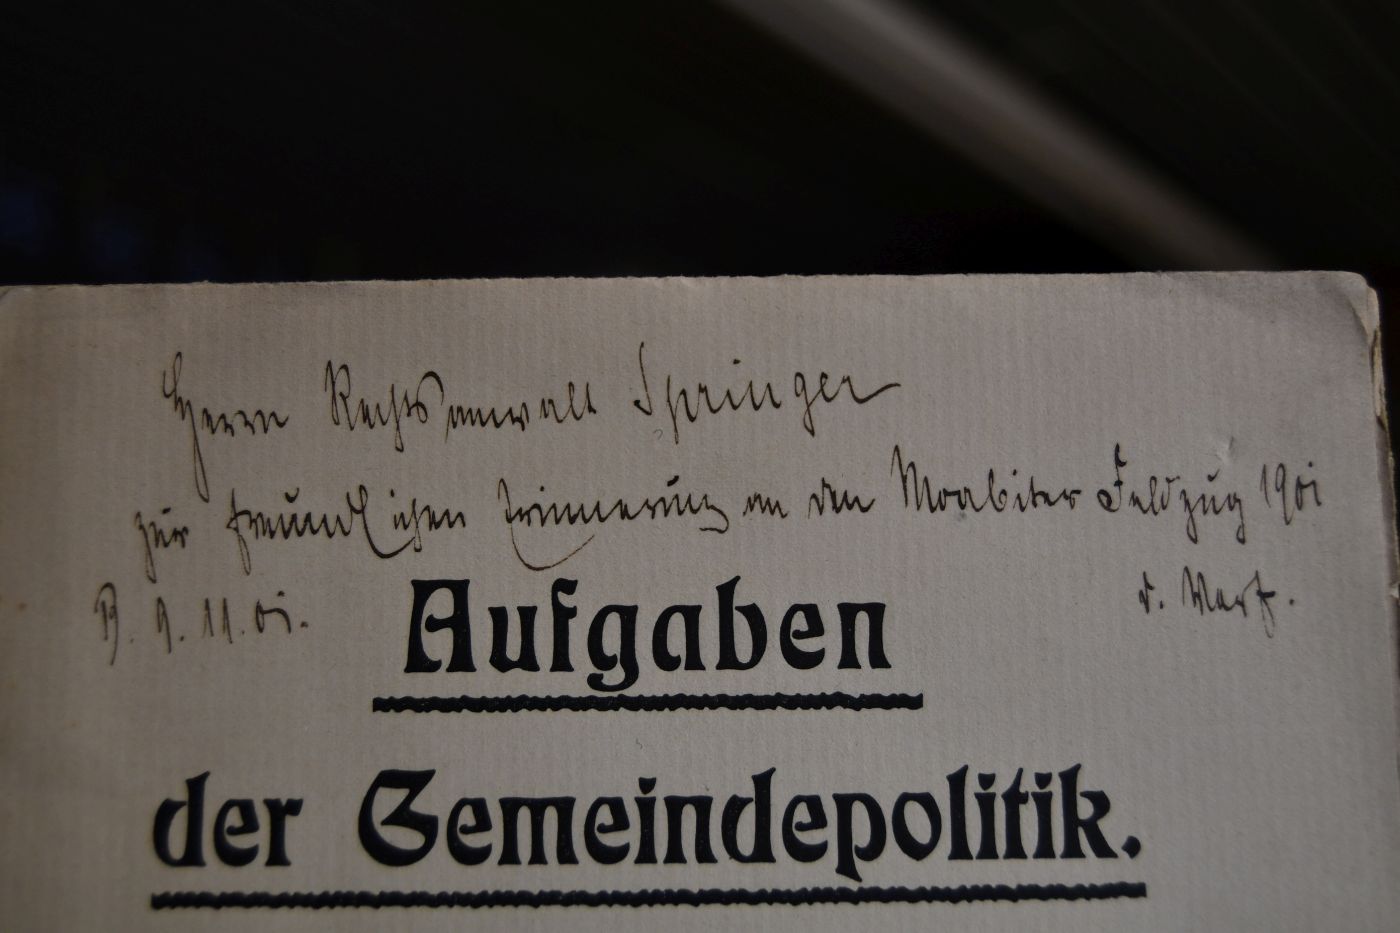 Herrn Rechtsanwalt Springer
zur freundlichen Erinnerung an den Moabiter Feldzug 1901
B. 9. 11. 01. d. Verf.
Aufgaben
der Gemeindepolitik.